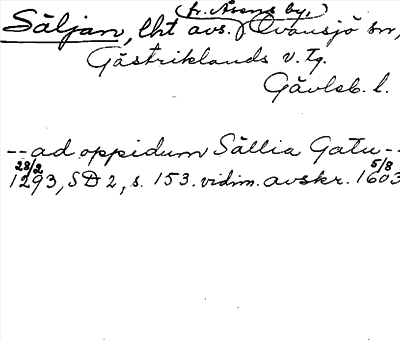 fr. Åsens by,
Säljan, lht avs. Ovansjö sn,
Gästriklands v. tg.
Gävleb. l.
-- ad oppidum Sällia Gatu --
28/2 1293, SD 2, s. 153. vidim. avskr. 5/8 1603